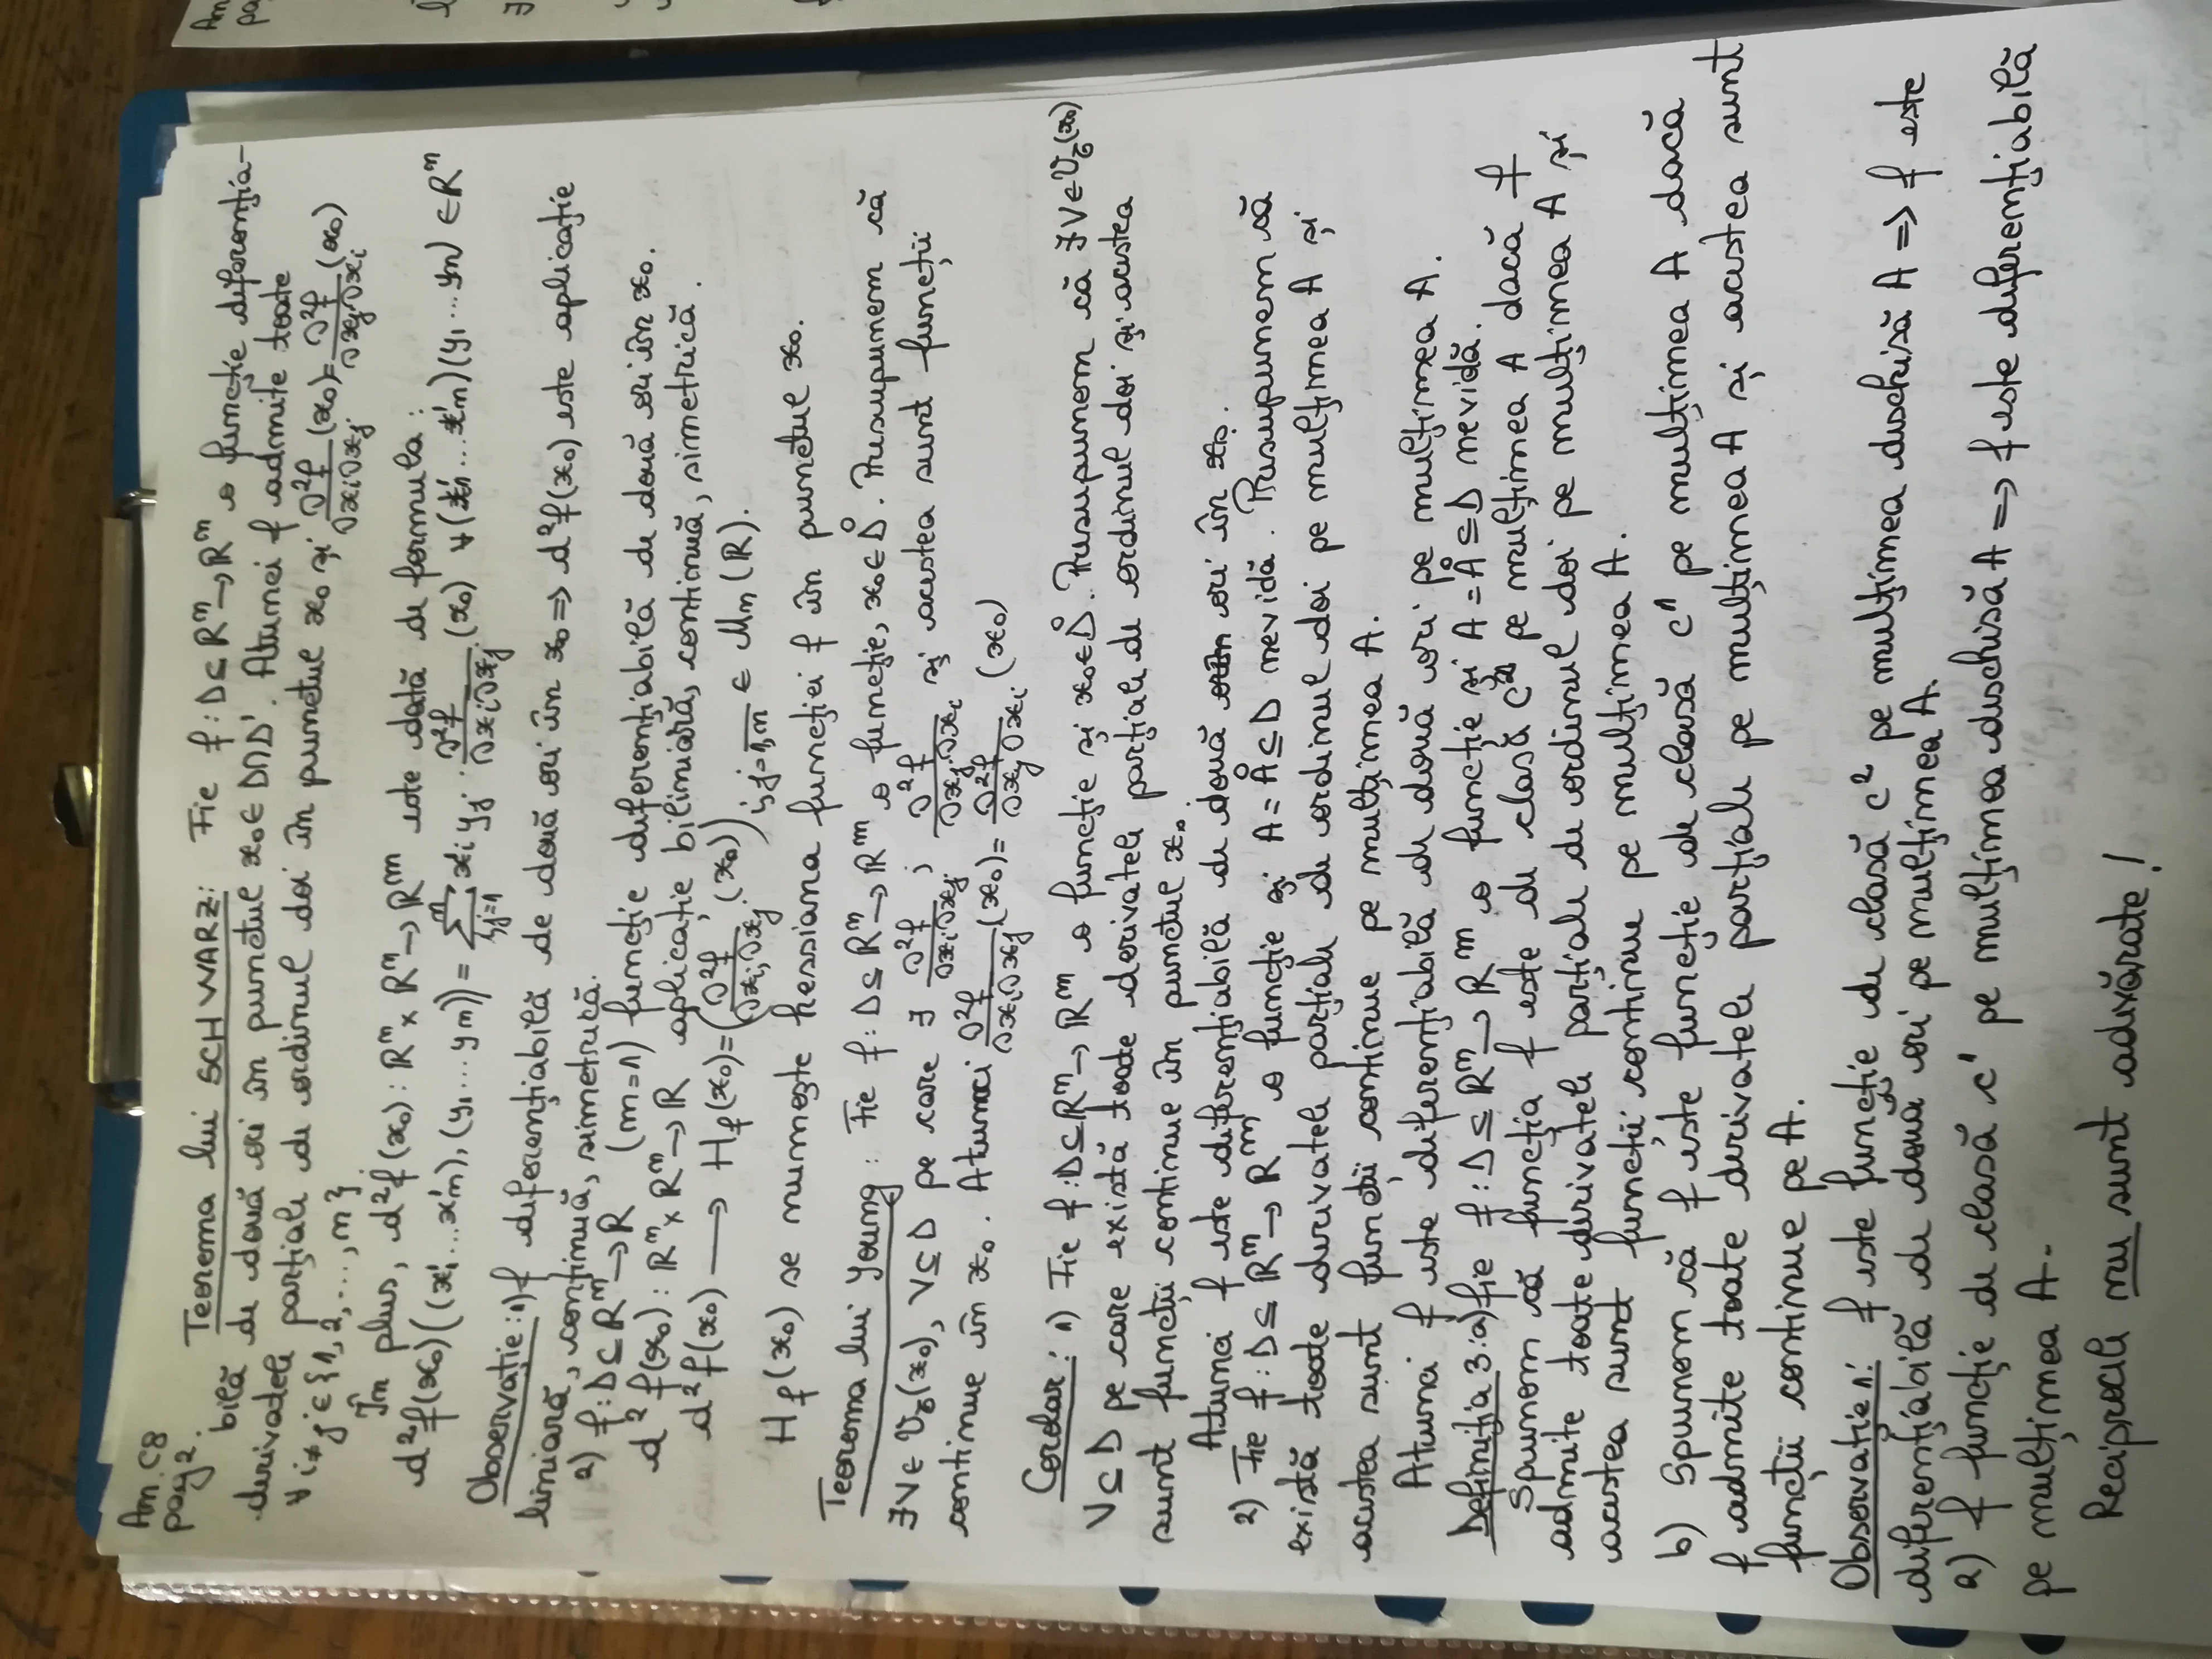 Am. C8
pag 2.
Teorema lui SCHWARZ: Fie f: D ⊆ ℝⁿ → ℝᵐ o funcție diferenția-
bilă de două ori în punctul x₀ ∈ D∩D'. Atunci f admite toate
derivatele parțiale de ordinul doi în punctul x₀ și ∂²f/∂xi∂xj (x₀) = ∂²f/∂xj∂xi (x₀)
∀ i≠j ∈ {1, 2, ..., n}
În plus, d²f(x₀): ℝⁿ × ℝⁿ → ℝᵐ este dată de formula:
d²f(x₀)((x₁ ... xn), (y₁ ... yn)) = Σ i,j=1 n xi yj · ∂²f/∂xi∂xj (x₀) ∀ (x₁ ... xn)(y₁ ... yn) ∈ ℝⁿ
Observație: 1) f diferențiabilă de două ori în x₀ => d²f(x₀) este aplicație
liniară, continuă, simetrică.
2) f: D ⊆ ℝⁿ → ℝ (m=1) funcție diferențiabilă de două ori în x₀.
d²f(x₀): ℝⁿ × ℝⁿ → ℝ aplicație biliniară, continuă, simetrică.
d²f(x₀) ⟶ Hf(x₀) = (∂²f/∂xi∂xj (x₀)) i,j=1,n ∈ Mn(ℝ).
Hf(x₀) se numește hessiana funcției f în punctul x₀.
Teorema lui Young: Fie f: D ⊆ ℝⁿ → ℝᵐ o funcție, x₀ ∈ D̊. Presupunem că
∃ V ∈ 𝒱(x₀), V ⊆ D pe care ∃ ∂²f/∂xi∂xj ; ∂²f/∂xj∂xi și acestea sunt funcții
continue în x₀. Atunci ∂²f/∂xi∂xj (x₀) = ∂²f/∂xj∂xi (x₀)
Corolar: 1) Fie f: D ⊆ ℝⁿ → ℝᵐ o funcție și x₀ ∈ D̊. Presupunem că ∃ V ∈ 𝒱(x₀)
V ⊆ D pe care există toate derivatele parțiale de ordinul doi și acestea
sunt funcții continue în punctul x₀.
Atunci f este diferențiabilă de două ori în x₀.
2) Fie f: D ⊆ ℝⁿ → ℝᵐ o funcție și A = Å ⊆ D nevidă. Presupunem că
există toate derivatele parțiale de ordinul doi pe mulțimea A și
acestea sunt funcții continue pe mulțimea A.
Atunci f este diferențiabilă de două ori pe mulțimea A.
Definiția 3: a) fie f: D ⊆ ℝⁿ → ℝᵐ o funcție și A = Å ⊆ D nevidă.
Spunem că funcția f este de clasă C² pe mulțimea A dacă f
admite toate derivatele parțiale de ordinul doi pe mulțimea A și
acestea sunt funcții continue pe mulțimea A.
b) Spunem că f este funcție de clasă C¹ pe mulțimea A dacă
f admite toate derivatele parțiale pe mulțimea A și acestea sunt
funcții continue pe A.
Observație 1: f este funcție de clasă C² pe mulțimea deschisă A => f este
diferențiabilă de două ori pe mulțimea A.
2) f funcție de clasă C' pe mulțimea deschisă A => f este diferențiabilă
pe mulțimea A.
Reciprocele nu sunt adevărate!